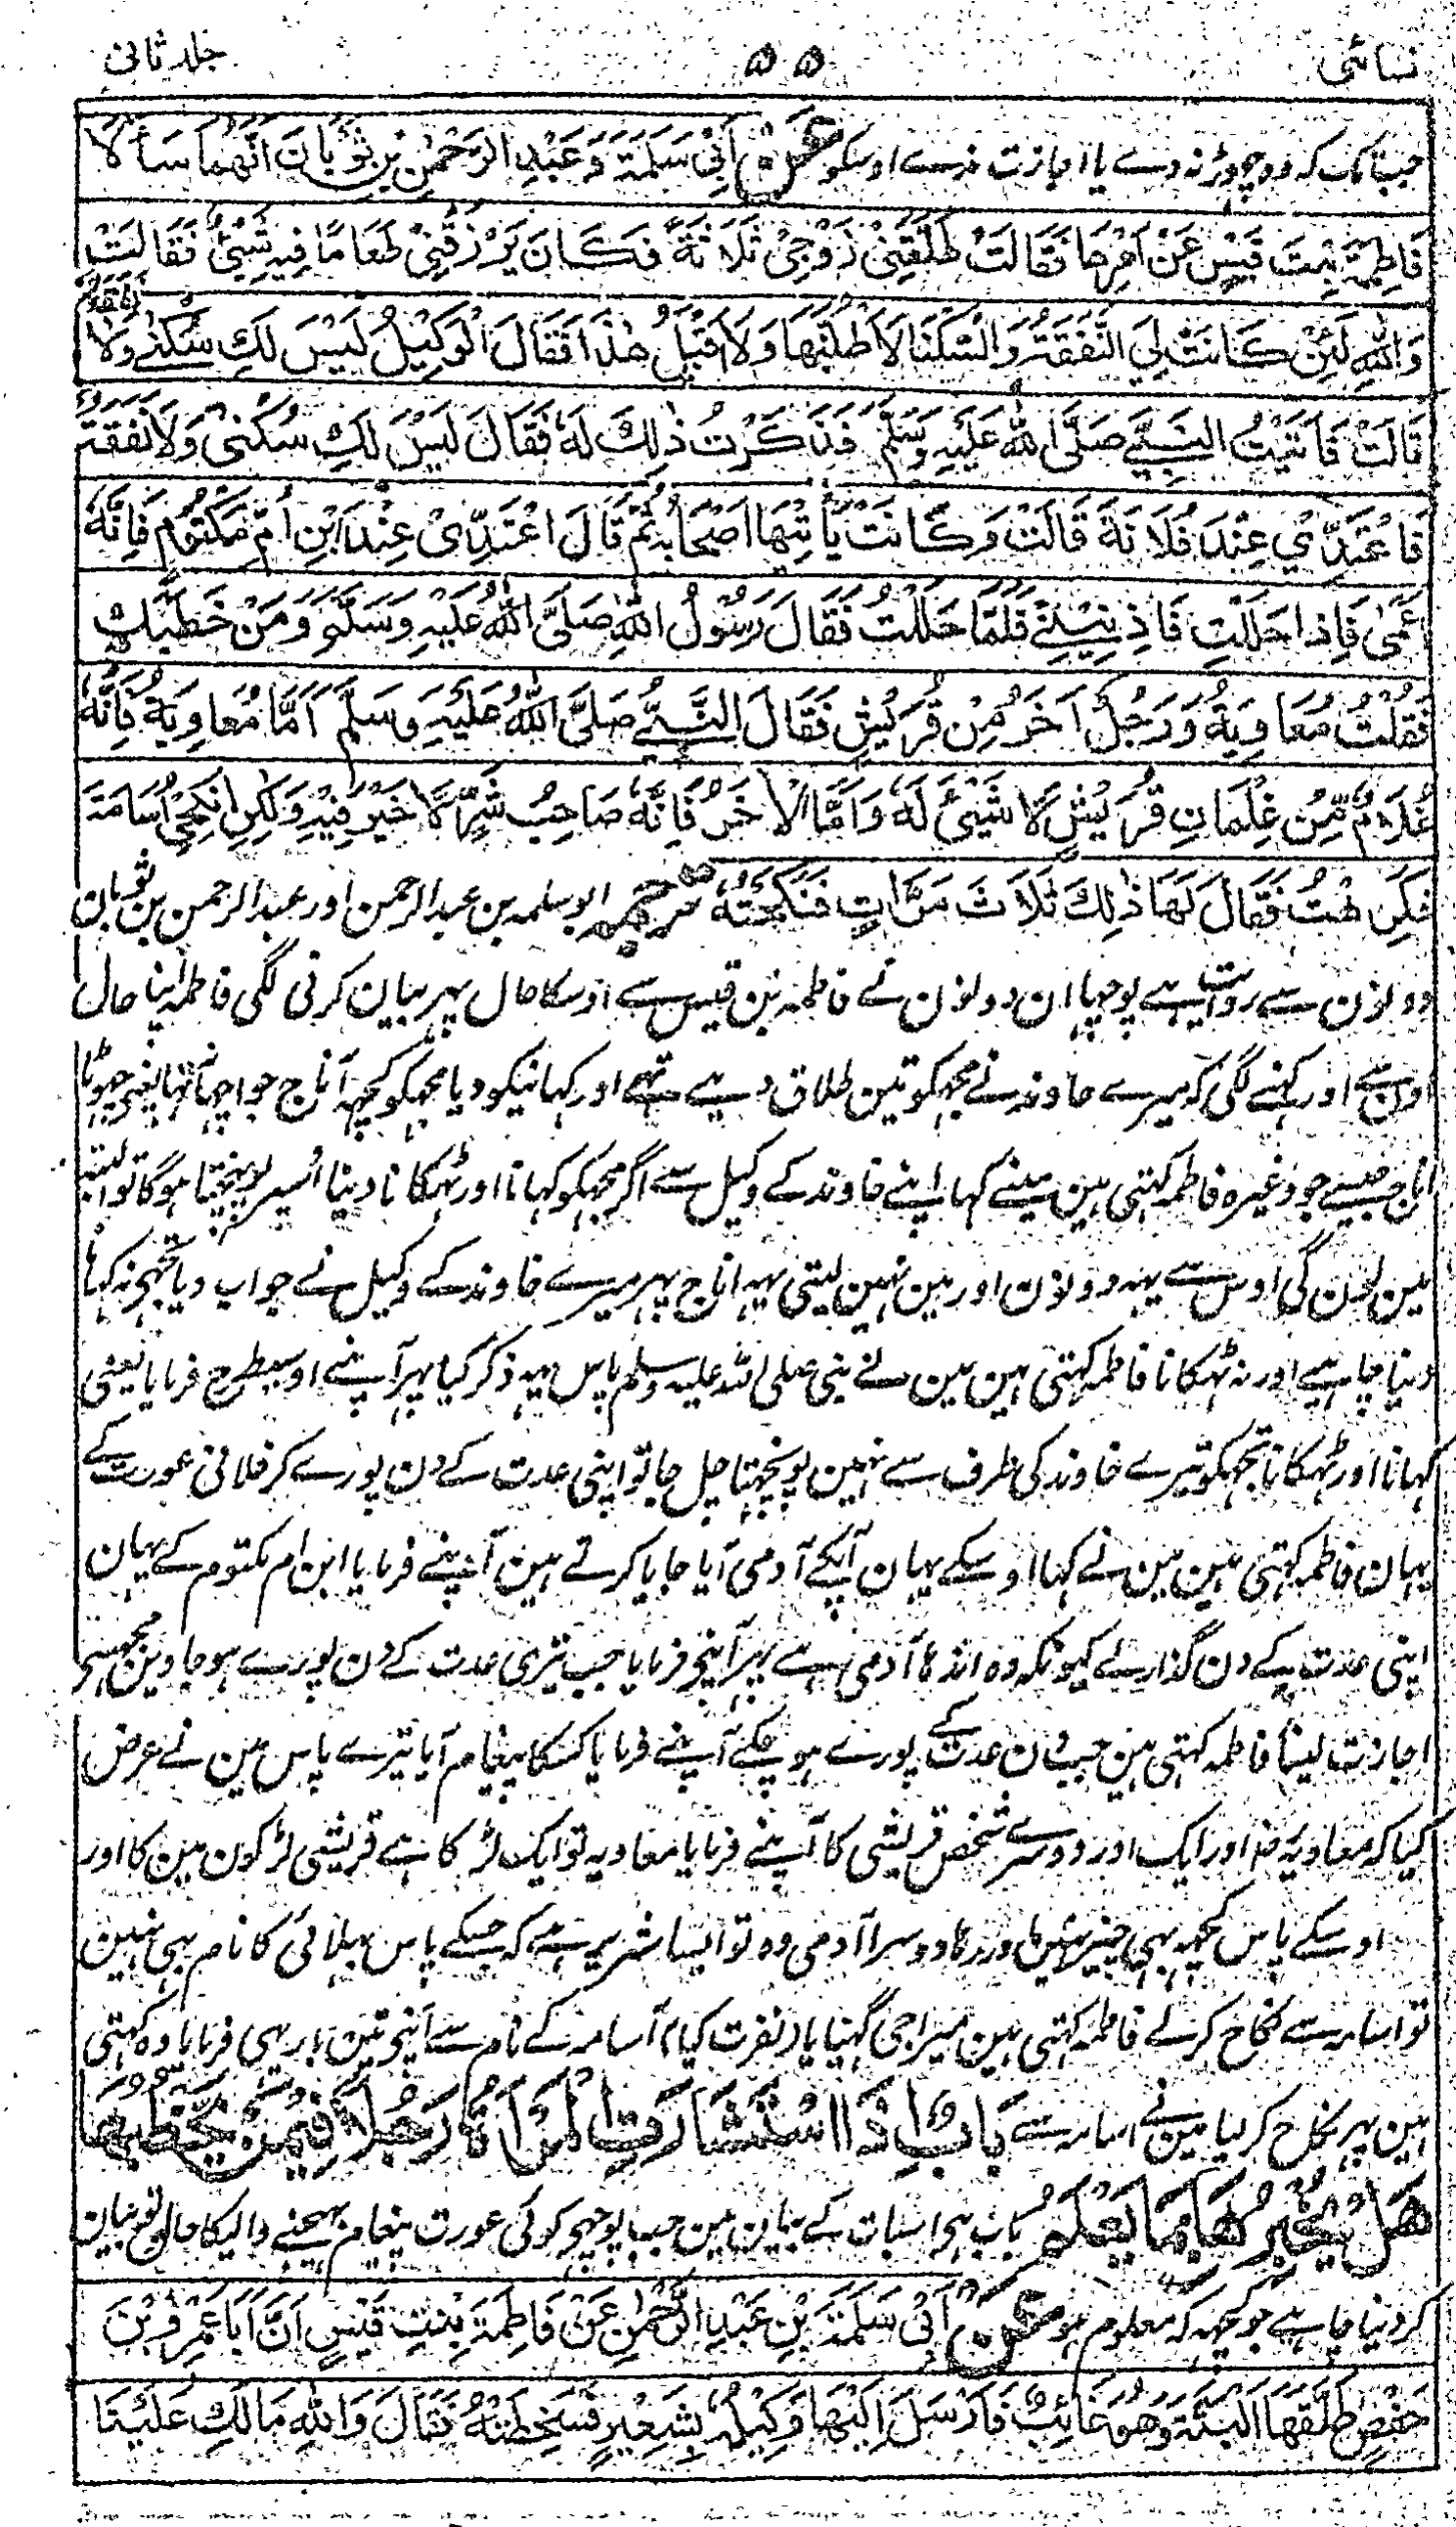 نسائی ۵۵ جلد ثانی
جبتک کہ وہ چھوڑ نہ دے یا اجازت ندے اوسکو عَنْ اَبِیْ سَلَمَةَ وَعَبْدِ الرَّحْمٰنِ بْنِ ثَوْبَانَ اَنَّهُمَا سَاَلَا
فَاطِمَةَ بِنْتَ قَيْسٍ عَنْ اَمْرِهَا فَقَالَتْ طَلَّقَنِیْ زَوْجِیْ ثَلَاثَةً فَكَانَ يَرْزُقُنِیْ طَعَامًا فِيْهِ شَیْئٌ فَقَالَتْ
وَاللّٰهِ لَئِنْ كَانَتْ لِیَ النَّفَقَةُ وَالسُّكْنَا لَاَطْلُبَنَّهَا وَلَا اَقْبَلُ هٰذَا فَقَالَ الْوَكِيْلُ لَيْسَ لَكِ سُكْنٰی وَلَا نَفَقَةٌ
قَالَتْ فَاَتَيْتُ النَّبِیَّ صَلَّی اللّٰهُ عَلَيْهِ وَسَلَّمَ فَذَكَرْتُ ذٰلِكَ لَهٗ فَقَالَ لَيْسَ لَكِ سُكْنٰی وَلَا نَفَقَةٌ
فَاعْتَدِّیْ عِنْدَ فُلَانَةَ قَالَتْ وَكَانَتْ يَاْتِيْهَا اَصْحَابُهٗ ثُمَّ قَالَ اعْتَدِّیْ عِنْدَ ابْنِ اُمِّ مَكْتُوْمٍ فَاِنَّهٗ
اَعْمٰی فَاِذَا حَلَلْتِ فَاٰذِنِيْنِیْ فَلَمَّا حَلَلْتُ فَقَالَ رَسُوْلُ اللّٰهِ صَلَّی اللّٰهُ عَلَيْهِ وَسَلَّمَ وَمَنْ خَطَبَكِ
فَقُلْتُ مُعَاوِيَةُ وَرَجُلٌ اٰخَرُ مِنْ قُرَيْشٍ فَقَالَ النَّبِیُّ صَلَّی اللّٰهُ عَلَيْهِ وَسَلَّمَ اَمَّا مُعَاوِيَةُ فَاِنَّهٗ
غُلَامٌ مِّنْ غِلْمَانِ قُرَيْشٍ لَا شَیْئَ لَهٗ وَاَمَّا الْاٰخَرُ فَاِنَّهٗ صَاحِبُ شَرٍّ لَا خَيْرَ فِيْهِ وَلٰكِنِ انْكِحِیْ اُسَامَةَ
فَكَرِهْتُ فَقَالَ لَهَا ذٰلِكَ ثَلَاثَ مَرَّاتٍ فَنَكَحَتْهُ ترجمہ ابو سلمہ بن عبدالرحمن اور عبدالرحمن بن ثوبان
دونون سے روایت ہے پوچھا ان دونون نے فاطمہ بن قیس سے اوسکا حال پہر بیان کرنی لگی فاطمہ اپنا حال
اونسے اور کہنے لگی کہ میرے خاوند نے مجہکو تین طلاق دیے تہے اور کہانیکو دیا مجہکو کچہہ اناج جو اچہا نتہا یعنی چہوٹا
اناج جیسے جو وغیرہ فاطمہ کہتی ہین مینے کہا اپنے خاوند کے وکیل سے اگر مجہکو کہانا اور ٹہکانا دینا اسپر پونہچتا ہوگا تو البتہ
مین لون گی اوس سے یہہ دونون اور مین نہین لیتی یہہ اناج پہر میرے خاوند کے وکیل نے جواب دیا تجہے نہ کہانا
دینا چاہیے اور نہ ٹہکانا فاطمہ کہتی ہین مین نے نبی صلی اللہ علیہ وسلم پاس یہہ ذکر کیا پہر آپنے اوسیطرح فرمایا یعنی
کہانا اور ٹہکانا تجہکو تیرے خاوند کی طرف سے نہین پونچہتا چل جا تو اپنی عدت کے دن پورے کر فلانی عورت کے
یہان فاطمہ کہتی ہین مین نے کہا اوسکے یہان آپکے آدمی آیا جایا کرتے ہین آپنے فرمایا ابن ام مکتوم کے یہان
اپنی عدت کے دن گذارلے کیونکہ وہ اندہا آدمی ہے پہر آپنے فرمایا جب تیری عدت کے دن پورے ہو جاوین مجہسے
اجازت لینا فاطمہ کہتی ہین جب دن عدت کے پورے ہو چکے آپنے فرمایا کسکا پیغام آیا تیرے پاس مین نے عرض
کیا کہ معاویہؓ کا اور ایک اور دوسرے شخص قریشی کا آپنے فرمایا معاویہ تو ایک لڑکا ہے قریشی لڑکون مین کا اور
اوسکے پاس کچہہ بہی چیز نہین اور رہا دوسرا آدمی وہ تو ایسا شریر ہے کہ جسکے پاس بہلائی کا نام بہی نہین
تو اسامہ سے نکاح کرلے فاطمہ کہتی ہین میرا جی گہنایا اور نفرت کیا اسامہ کے نام سے آپنے تین بار یہی فرمایا وہ کہتی
ہین پہر نکاح کر لیا مین نے اسامہ سے بَابُ اِذَا اسْتَشَارَتِ الْمَرْاَةُ رَجُلًا فِيْمَنْ يَخْطُبُهَا
هَلْ يُخْبِرُهَا بِمَا يَعْلَمُ باب ہی اسبات کے بیان مین جب پوچہے کوئی عورت پیغام بہیجنے والیکا حال تو بیان
کر دینا چاہیے جو کچہہ کہ معلوم ہو عَنْ اَبِیْ سَلَمَةَ بْنِ عَبْدِ الرَّحْمٰنِ عَنْ فَاطِمَةَ بِنْتِ قَيْسٍ اَنَّ اَبَا عَمْرِو بْنَ
حَفْصٍ طَلَّقَهَا الْبَتَّةَ وَهُوَ غَائِبٌ فَاَرْسَلَ اِلَيْهَا وَكِيْلُهٗ بِشَعِيْرٍ فَسَخِطَتْهُ فَقَالَ وَاللّٰهِ مَا لَكِ عَلَيْنَا